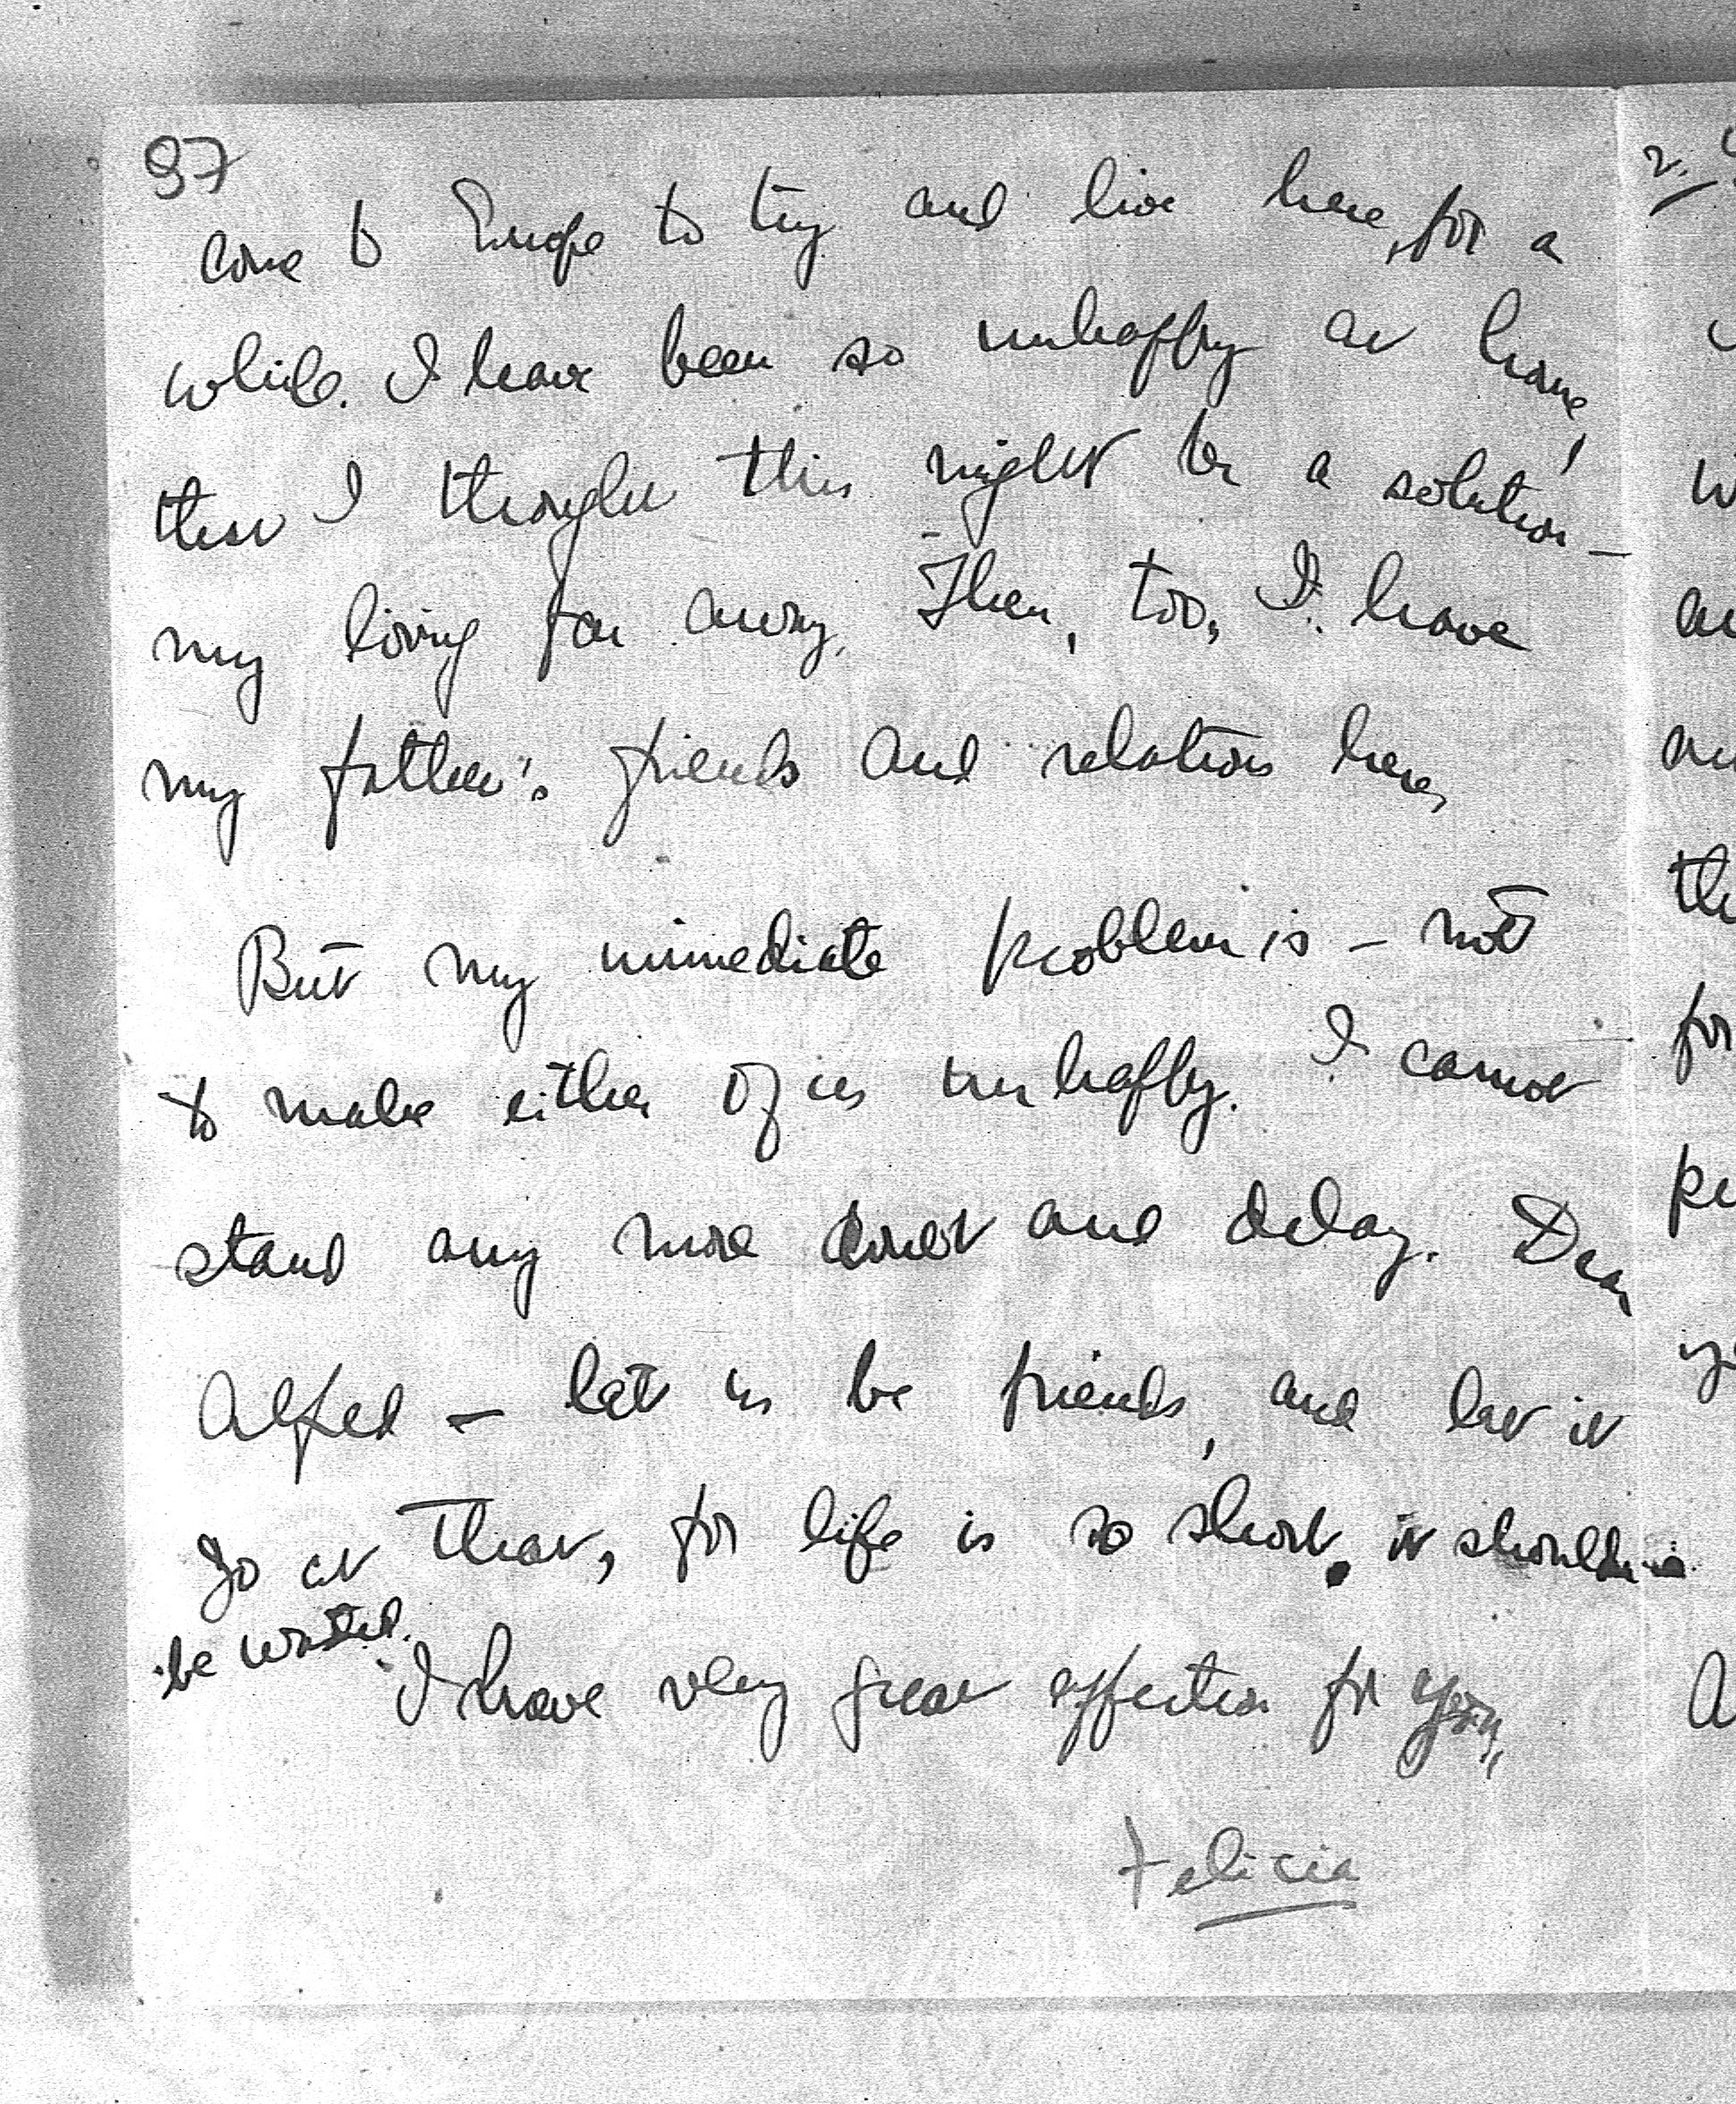 97
come to Europe to try and live here, for a
while. I have been so unhappy at home,
that I thought this might be a solution —
my living far away. Then, too, I have
my father's friends and relations here,
But my immediate problem is — not
to make either of us unhappy. I cannot
stand any more doubt and delay. Dear
Alfred — let us be friends, and let it
go at that, for life is so short, it shouldn't
be wasted.
I have very great affection for you,
Felicia
2.